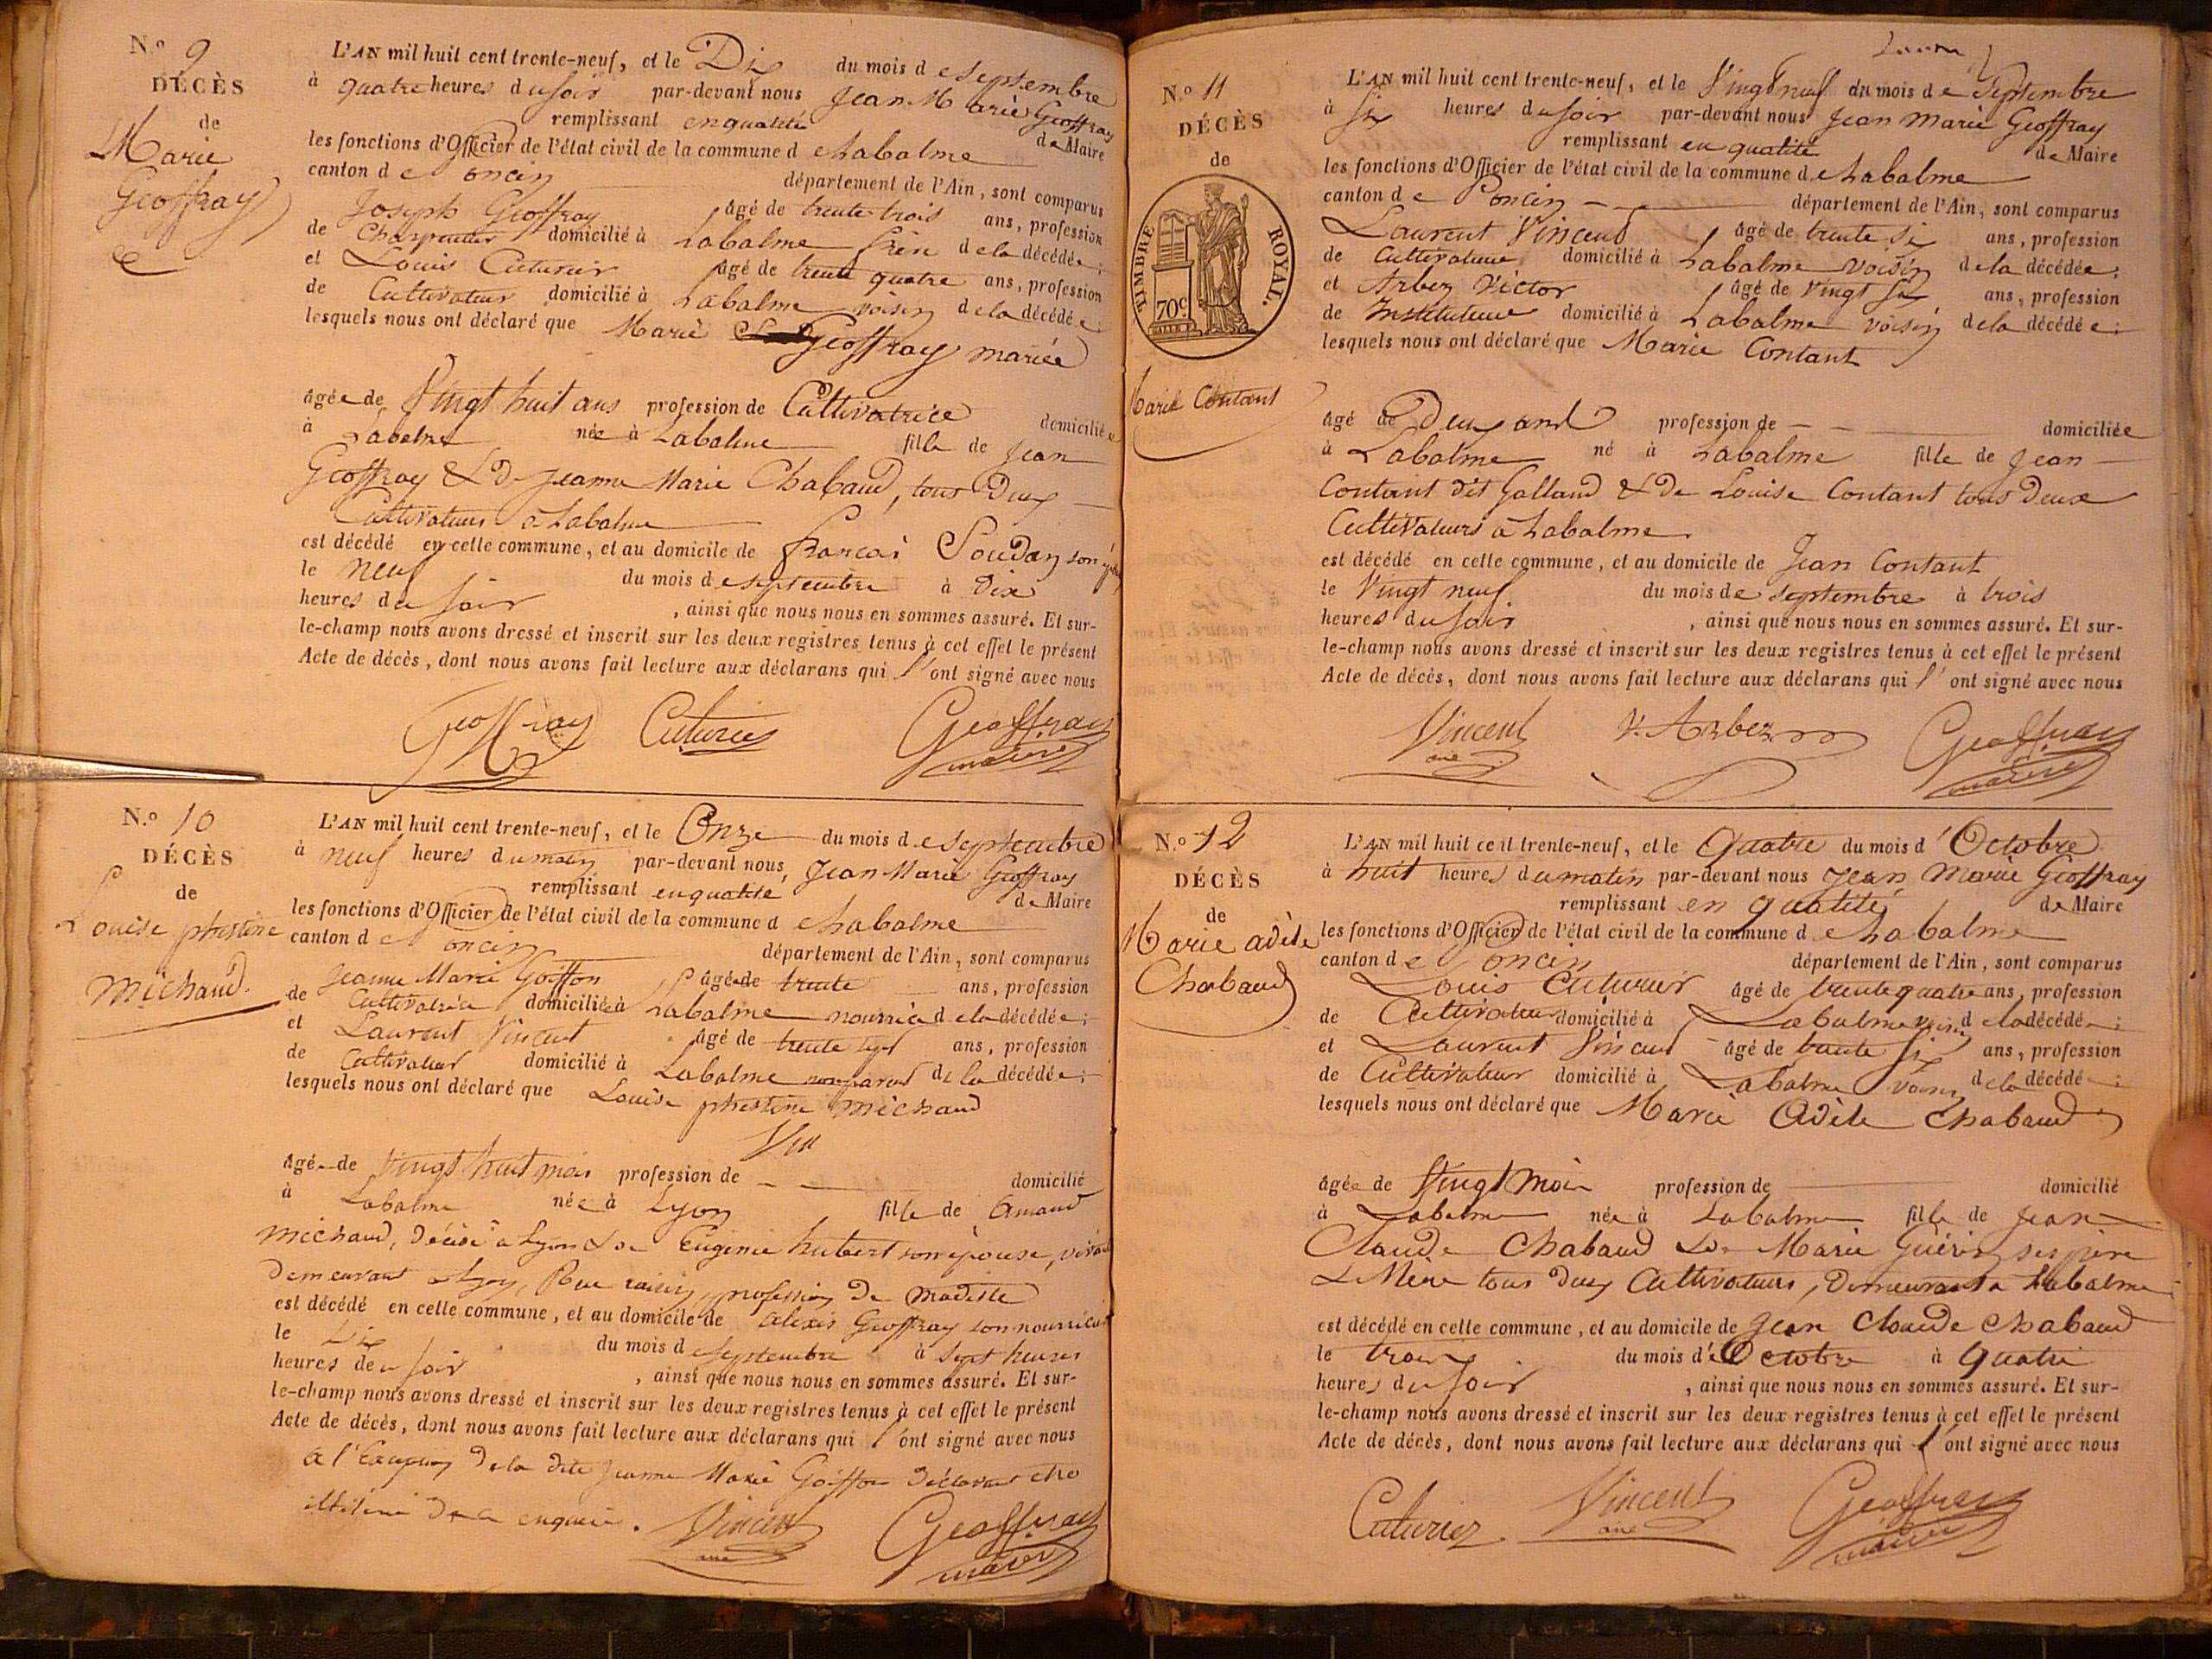 N.o 9
DÉCÈS
de
Marie
Geoffray
L'AN mil huit cent trente-neuf, et le Dix du mois de septembre
à quatre heures du soir par-devant nous Jean Marie Geoffray
remplissant en qualité de Maire
les fonctions d'Officier de l'état civil de la commune de Labalme
canton de Poncin département de l'Ain, sont comparus
Joseph Geoffray âgé de trente trois ans, profession
de Charpentier domicilié à Labalme frère de la décédée;
et Louis Cuturier âgé de trente quatre ans, profession
de Cultivateur domicilié à Labalme voisin de la décédée;
lesquels nous ont déclaré que Marie Geoffray mariée
âgée de Vingt huit ans profession de Cultivatrice domiciliée
à Labalme née à Labalme fille de Jean
Geoffray & de Jeanne Marie Chabaud, tous Deux
Cultivateurs à Labalme
est décédé en cette commune, et au domicile de francois Soudan son
le neuf du mois de septembre à Dix
heures du soir, ainsi que nous nous en sommes assuré. Et sur-
le-champ nous avons dressé et inscrit sur les deux registres tenus à cet effet le présent
Acte de décès, dont nous avons fait lecture aux déclarans qui l'ont signé avec nous
Geoffray Cuturier Geoffray
maire
N.o 10
DÉCÈS
de
Louise phestine
Michaud.
L'AN mil huit cent trente-neuf, et le Onze du mois de septembre
à neuf heures du matin par-devant nous, Jean Marie Geoffray
remplissant en qualité de Maire
les fonctions d'Officier de l'état civil de la commune de Labalme
canton de Poncin département de l'Ain, sont comparus
Jeanne Marie Goiffon âgée de trente ans, profession
de Cultivatrice domiciliée à Labalme nourrice de la décédée;
et Laurent Vincent âgé de trente sept ans, profession
de Cultivateur domicilié à Labalme non parent de la décédée;
lesquels nous ont déclaré que Louise phestine Michaud
âgé de Vingt huit mois profession de domicilié
à Labalme née à Lyon fille de Amand
Michaud, décédé à Lyon & de Eugenie hubert son épouse,
Demeurant à Lyon, Rue raisin, profession De modiste
est décédé en cette commune, et au domicile de alexis Geoffray son nourricier
le Dix du mois de septembre à sept heures
heures de u soir, ainsi que nous nous en sommes assuré. Et sur-
le-champ nous avons dressé et inscrit sur les deux registres tenus à cet effet le présent
Acte de décès, dont nous avons fait lecture aux déclarans qui l'ont signé avec nous
a l' De la dite Jeanne Marie Goiffon
enquise. Vincent Geoffray
ainé maire
N.o 11
DÉCÈS
de
TIMBRE ROYAL.
70c
Marie Contant
L'AN mil huit cent trente-neuf, et le Vingt neuf du mois de Septembre
à Six heures du soir par-devant nous Jean Marie Geoffray
remplissant en qualité de Maire
les fonctions d'Officier de l'état civil de la commune de Labalme
canton de Poncin département de l'Ain, sont comparus
Laurent Vincent âgé de trente six ans, profession
de Cultivateur domicilié à Labalme voisin de la décédée;
et Arbez Victor âgé de vingt six ans, profession
de Instituteur domicilié à Labalme voisin de la décédée;
lesquels nous ont déclaré que Marie Contant
âgé de Deux ans profession de domiciliée
à Labalme né à Labalme fille de Jean
Contant dit Galland & De Louise Contant tous Deux
Cultivateurs à Labalme
est décédé en cette commune, et au domicile de Jean Contant
le Vingt neuf du mois de septembre à trois
heures du soir, ainsi que nous nous en sommes assuré. Et sur-
le-champ nous avons dressé et inscrit sur les deux registres tenus à cet effet le présent
Acte de décès, dont nous avons fait lecture aux déclarans qui l'ont signé avec nous
Vincent V. Arbez Geoffray
ainé maire
N.o 12
DÉCÈS
de
Marie adèle
Chabaud
L'AN mil huit cent trente-neuf, et le Quatre du mois d'Octobre
à huit heures du matin par-devant nous Jean Marie Geoffray
remplissant en qualité de Maire
les fonctions d'Officier de l'état civil de la commune de Labalme
canton de Poncin département de l'Ain, sont comparus
Louis Cuturier âgé de trente quatre ans, profession
de Cultivateur domicilié à Labalme voisin de la décédée;
et Laurent Vincent âgé de trente six ans, profession
de Cultivateur domicilié à Labalme voisin de la décédée;
lesquels nous ont déclaré que Marie Adèle Chabaud
âgée de Vingt Mois profession de domicilié
à Labalme née à Labalme fille de Jean
Claude Chabaud & De Marie Guérin ses père
& Mère tous Deux Cultivateurs, Demeurant à Labalme
est décédé en cette commune, et au domicile de Jean Claude Chabaud
le trois du mois d'Octobre à Quatre
heures du soir, ainsi que nous nous en sommes assuré. Et sur-
le-champ nous avons dressé et inscrit sur les deux registres tenus à cet effet le présent
Acte de décès, dont nous avons fait lecture aux déclarans qui l'ont signé avec nous
Cuturier Vincent Geoffray
ainé maire